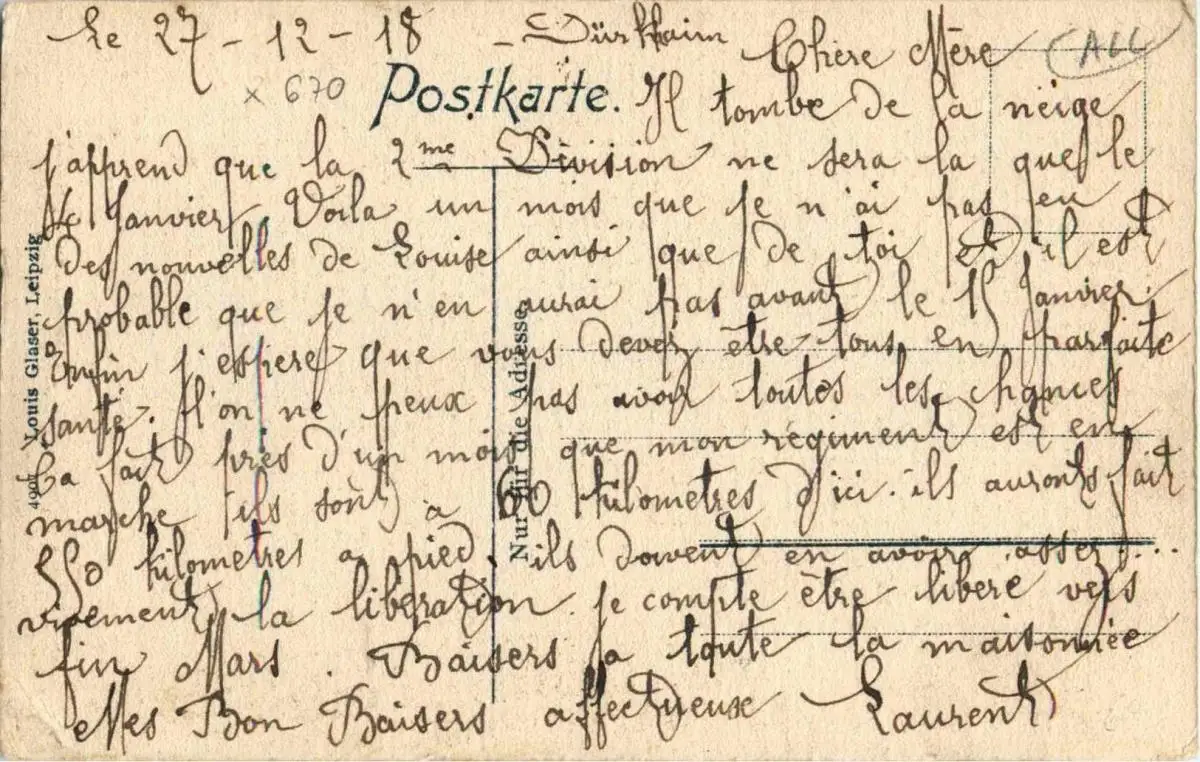 Le 27-12-18 - Dürkhaim Chère Mère
CALL
x 670
Postkarte.
Il tombe de la neige
j'apprend que la 2me Division ne sera la que le
Janvier. Voila un mois que je n'ai pas eu
des nouvelles de Louise ainsi que de toi et il est
probable que je n'en aurai pas avant le 15 Janvier.
Enfin j'espere que vous devez être tous en parfaite
santé. l'on ne peux pas avoir toutes les chances
Ca fait près d'un mois que mon régiment est en
marche ils sont a 60 kilometres d'ici. ils auronts fait
550 kilometres a pied. ils doivent en avoir assez...
vivement la libération je compte être libere vers
fin Mars. Baisers a toute la maisonnée
Mes Bon Baisers affectueux Laurent
4906 Louis Glaser, Leipzig
Nur für die Adresse